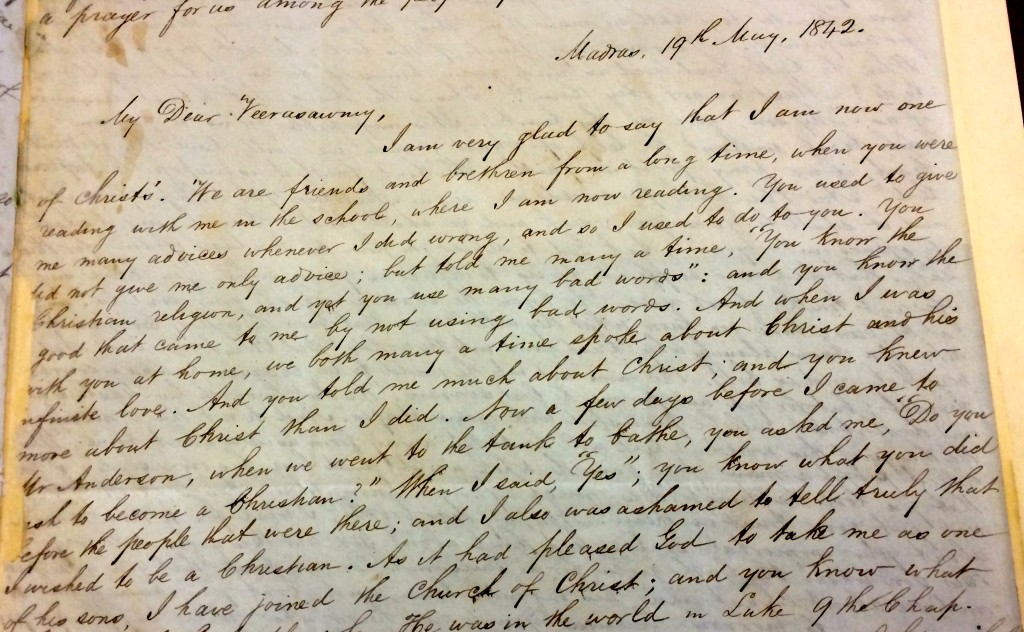 a prayer for us among the
Madras, 19th May, 1842.
My Dear Veerasawmy,
I am very glad to say that I am now one
of Christ's. We are friends and brethren from a long time, when you were
reading with me in the school, where I am now reading. You used to give
me many advices whenever I did wrong, and so I used to do to you. You
did not give me only advice; but told me many a time, "You know the
Christian religion, and yet you use many bad words": and you know the
good that came to me by not using bad words. And when I was
with you at home, we both many a time spoke about Christ and his
infinite love. And you told me much about Christ; and you knew
more about Christ than I did. Now a few days before I came to
Mr Anderson, when we went to the tank to bathe, you asked me, "Do you
ish to become a Christian?" When I said, "Yes"; you know what you did
efore the people that were there; and I also was ashamed to tell truly that
I wished to be a Christian. As it had pleased God to take me as one
of his sons, I have joined the Church of Christ; and you know what
He was in the world in Luke 9 the Chap.